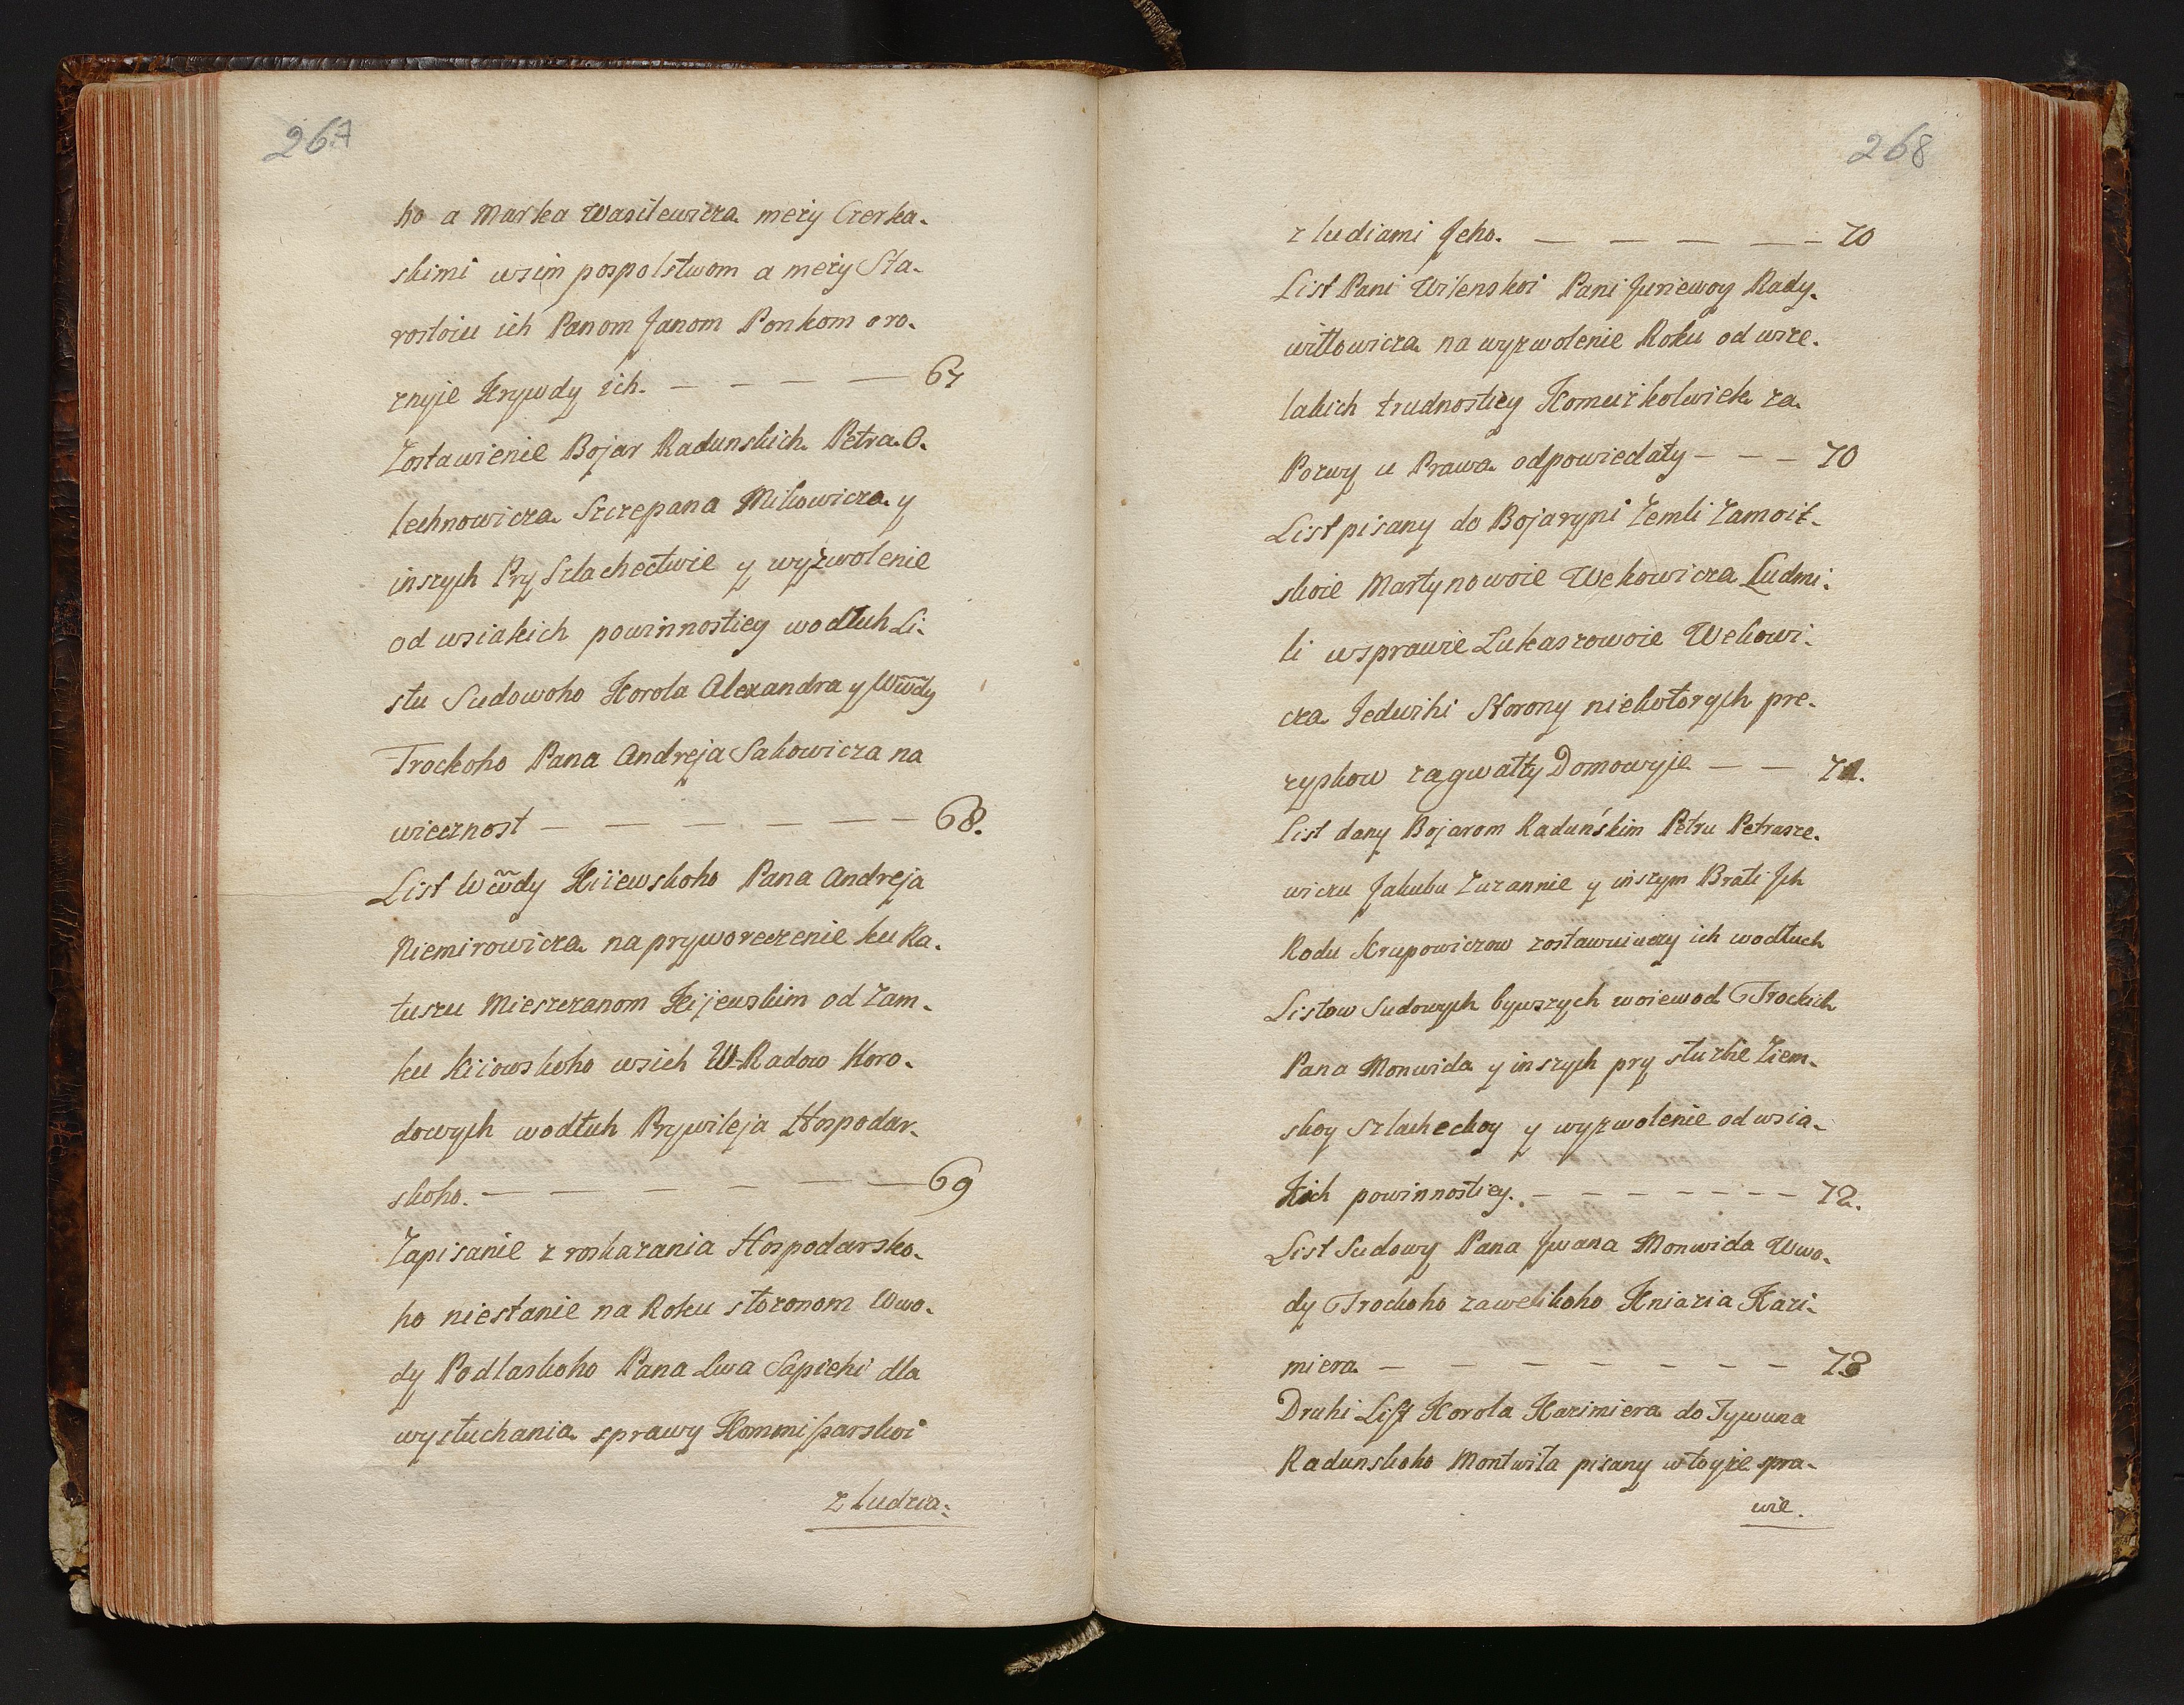 267
ho a Marka Wasilewicza meży Czerka-
skimi wsim pospolstwom a meży Sta-
rostoiu ich Panom Janom Ponkom o ro-
znyje Krywdy ich. — — — — 67
Zostawienie Bojar Radunskich Petra O-
lechnowicza Szczepana Mikowicza y
inszych Pry Szlachectwie y wyzwolenie
od wsiakich powinnostiey wodłuh Li-
stu Sudowoho Korola Alexandra y Wwdy
Trockoho Pana Andreja Sakowicza na
wiecznost — — — — — — 68.
List Wwdy Kiiewskoho Pana Andreja
Niemirowicza na pryworeczenie ku Ra-
tuszu Mieszczanom Kijewskim od Zam-
ku Kiiowskoho wsich W-Radow Horo-
dowych wodłuh Prywileja Hospodar-
skoho. — — — — — — 69
Zapisanie z roskazania Hospodarsko-
ho niestanie na Roku storonom Wwo-
dy Podlaskoho Pana Lwa Sapiehi dla
wysłuchania sprawy Kommissarskoi
z ludzia-
268
z ludiami Jeho. — — — — — 70
List Pani Wilenskoi Pani Juriewoy Rady-
wiłłowicza na wyzwolenie Roku od wsze-
lakich trudnostiey Komużkolwiek za
Pozwy u Prawa odpowiedaty — — — 70
List pisany do Bojaryni Zemli Zamoit-
skoie Martynowoie Wekowicza Ludmi-
li wsprawie Lukaszowoie Wekowi-
cza Jedwihi Storony niekotorych pre-
zyskow za gwałty Domowyje — — 71.
List dany Bojarom Raduńskim Petru Petrasze-
wiczu Jakubu Zuzannie y inszym Brati Jch
Rodu Krupowiczow zostawuiuczy ich wodłuch
Listow Sudowych bywszych woiewod Trockich
Pana Monwida y inszych pry służbie Ziem-
skoy Szlacheckoy y wyzwolenie od wsia-
kich powinnostiey. — — — — — — — 72.
List Sudowy Pana Jwana Monwida Wwo-
dy Trockoho zawelikoho Kniazia Kazi-
miera — — — — — — — 73
Druhi List Korola Kazimiera do Tywuna
Radunskoho Montwiła pisany wtoyże spra-
wie.